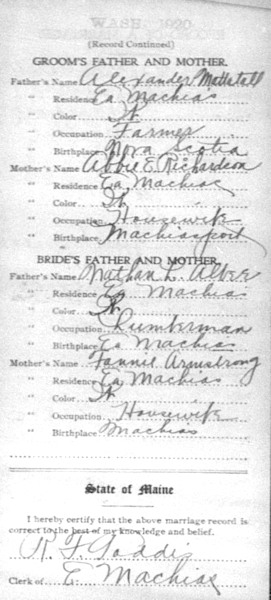 (Record Continued)
GROOM'S FATHER AND MOTHER.
Father's Name Alexander Mattatall
" Residence Ea Machias
" Color W
" Occupation Farmer
" Birthplace Nova Scotia
Mother's Name Abbie E. Richardson
" Residence Ea Machias
" Color W
" Occupation Housewife
" Birthplace Machiasport
BRIDE'S FATHER AND MOTHER.
Father's Name Nathan L. Albee
" Residence Ea Machias
" Color W
" Occupation Lumberman
" Birthplace Ea Machias
Mother's Name Fannie Armstrong
" Residence Ea Machias
" Color W
" Occupation Housewife
" Birthplace Machias
State of Maine
I hereby certify that the above marriage record is
correct to the best of my knowledge and belief.
Clerk of E Machias